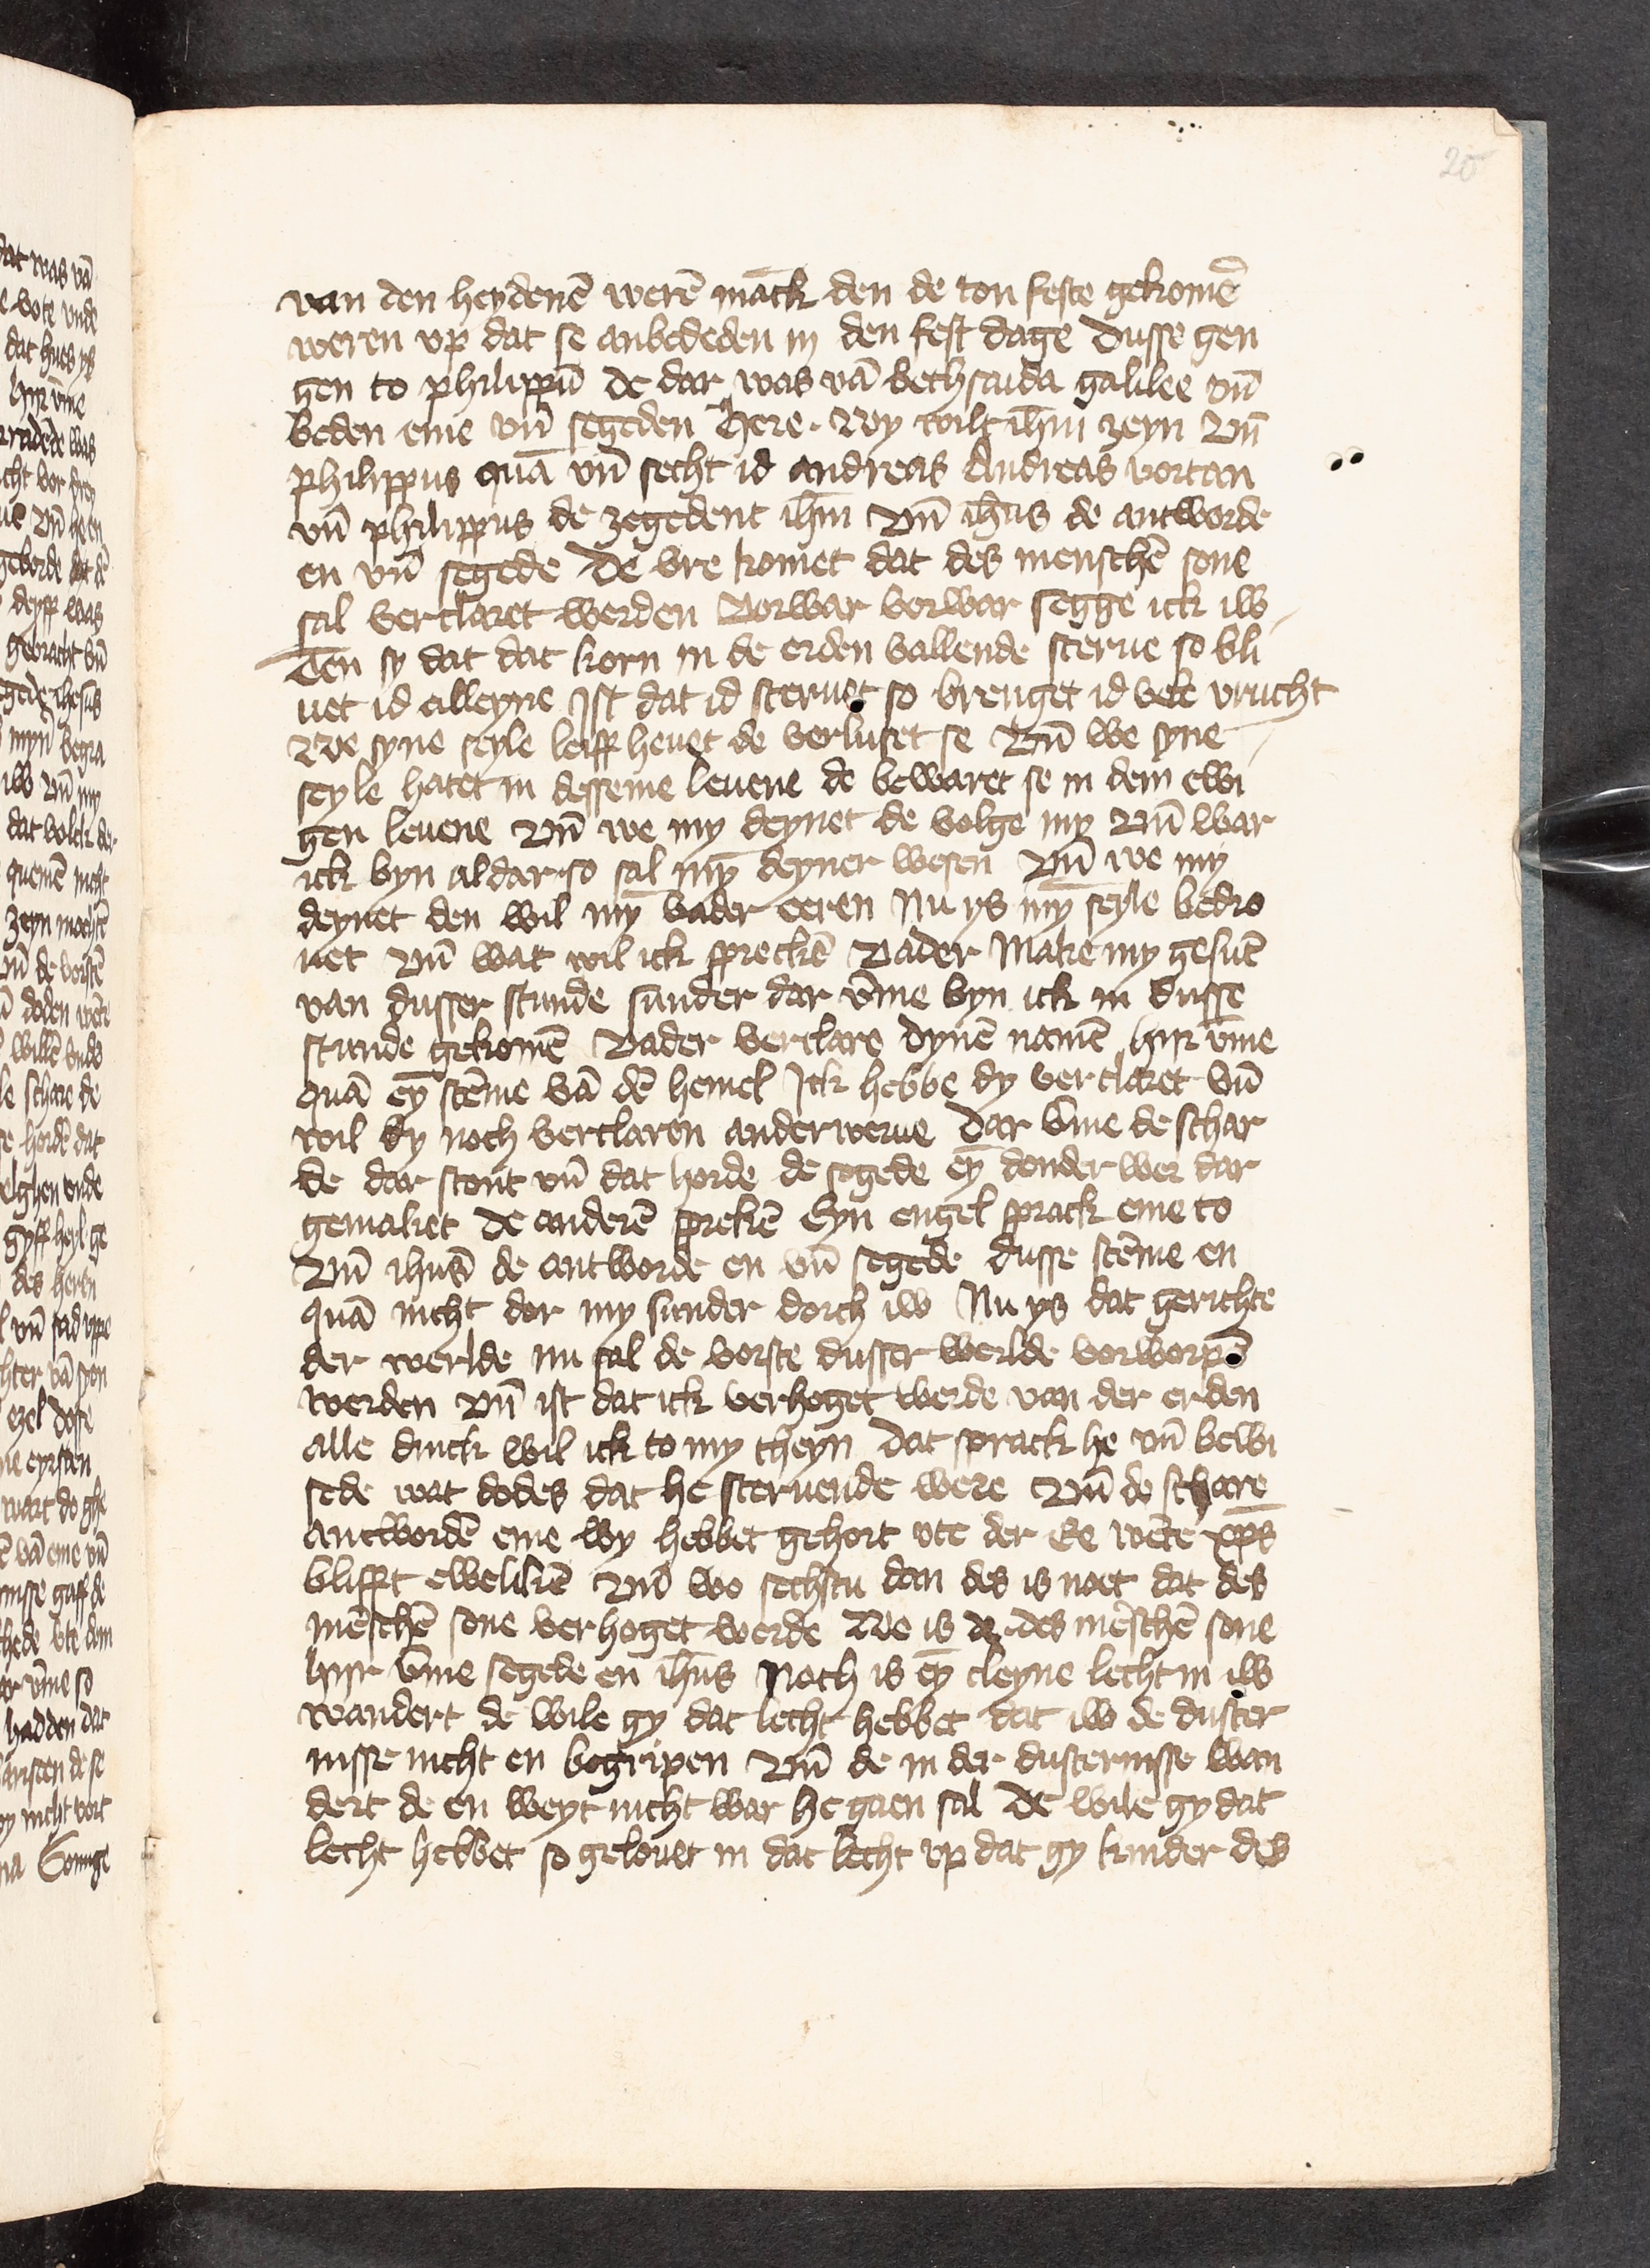 20
van den heydenē werē māck den de ton feste gekomē
weren vp dat se anbededen in den fest dage Dusse gen
gen to philippū de dar was vā bethsaida galilee vn̄
beden eme vn̄ segeden Here. Wy wilt ihm̄ zeyn Vn̄
philippus quā vn̄ secht id andreas Andreas vortan
vn̄ philippus de zegedent ihm̄ Vn̄ ih̄us de antworde
en vn̄ segede De vre komet dat des menschē sone
sal verclaret werden Vorwar vorwar segge ick iw
Ten sy dat dat korn in de erden vallende sterue so bli
uet id alleyne Ist dat id steruet so brenget id vele vrucht
We syne seyle leiff heuet de verluset se Vn̄ we syne
seyle hatet in desseme leuene de bewaret se in dem ewi
gen leuene Vn̄ we my deynet de volge my Vn̄ war
ick byn aldar so sal mȳ deyner wesen Vn̄ we my
deynet den wil mȳ vader eeren Nu ys mȳ seyle bedro
uet Vn̄ wat wil ick spreckē Vader Make my gesūt
van dusser stunde sunder dar v̄me byn ick in dusse
stunde gekomē Vader verclare dynē namē hijr v̄me
quā eȳ stēme vā dē hemel Ick hebbe dy verclaret vn̄
wil dy noch verclaren anderwerue Dar v̄me de schar
de dar stont vn̄ dat horde de segede eȳ donder wer dar
gemaket De anderē sprekē Eyn engel sprack eme to
Vn̄ ihus̄ de antworde en vn̄ segede dusse stēme en
quā nicht dor my sunder dorch iw Nu ys dat gerichte
der werlde nu sal de vorste dusser werlde vorworpē
werden Vn̄ ist dat ick verhoget werde van der erden
alle dinck wil ick to my theyn Dat sprack he vn̄ bewi
sede wat dodes dat he steruende were Vn̄ de schare
antwordē eme wy hebbet gehort vte der Ee wēte xp̄s
blifft ewelikē Vn̄ wo sechstu dan des is noet dat des
mēschē sone verhoget werde We is de des mēschē sone
hijr v̄me segede en ih̄us Noch is eȳ cleyne lecht in iw
wandert de wile gy dat lecht hebbet dat iw de duster
nisse nicht en begripen Vn̄ de in der dusternisse wan
dert de en weyt nicht war he gaen sal De wile gy dat
lecht hebbet so gelouet in dat lecht vp dat gy kinder des